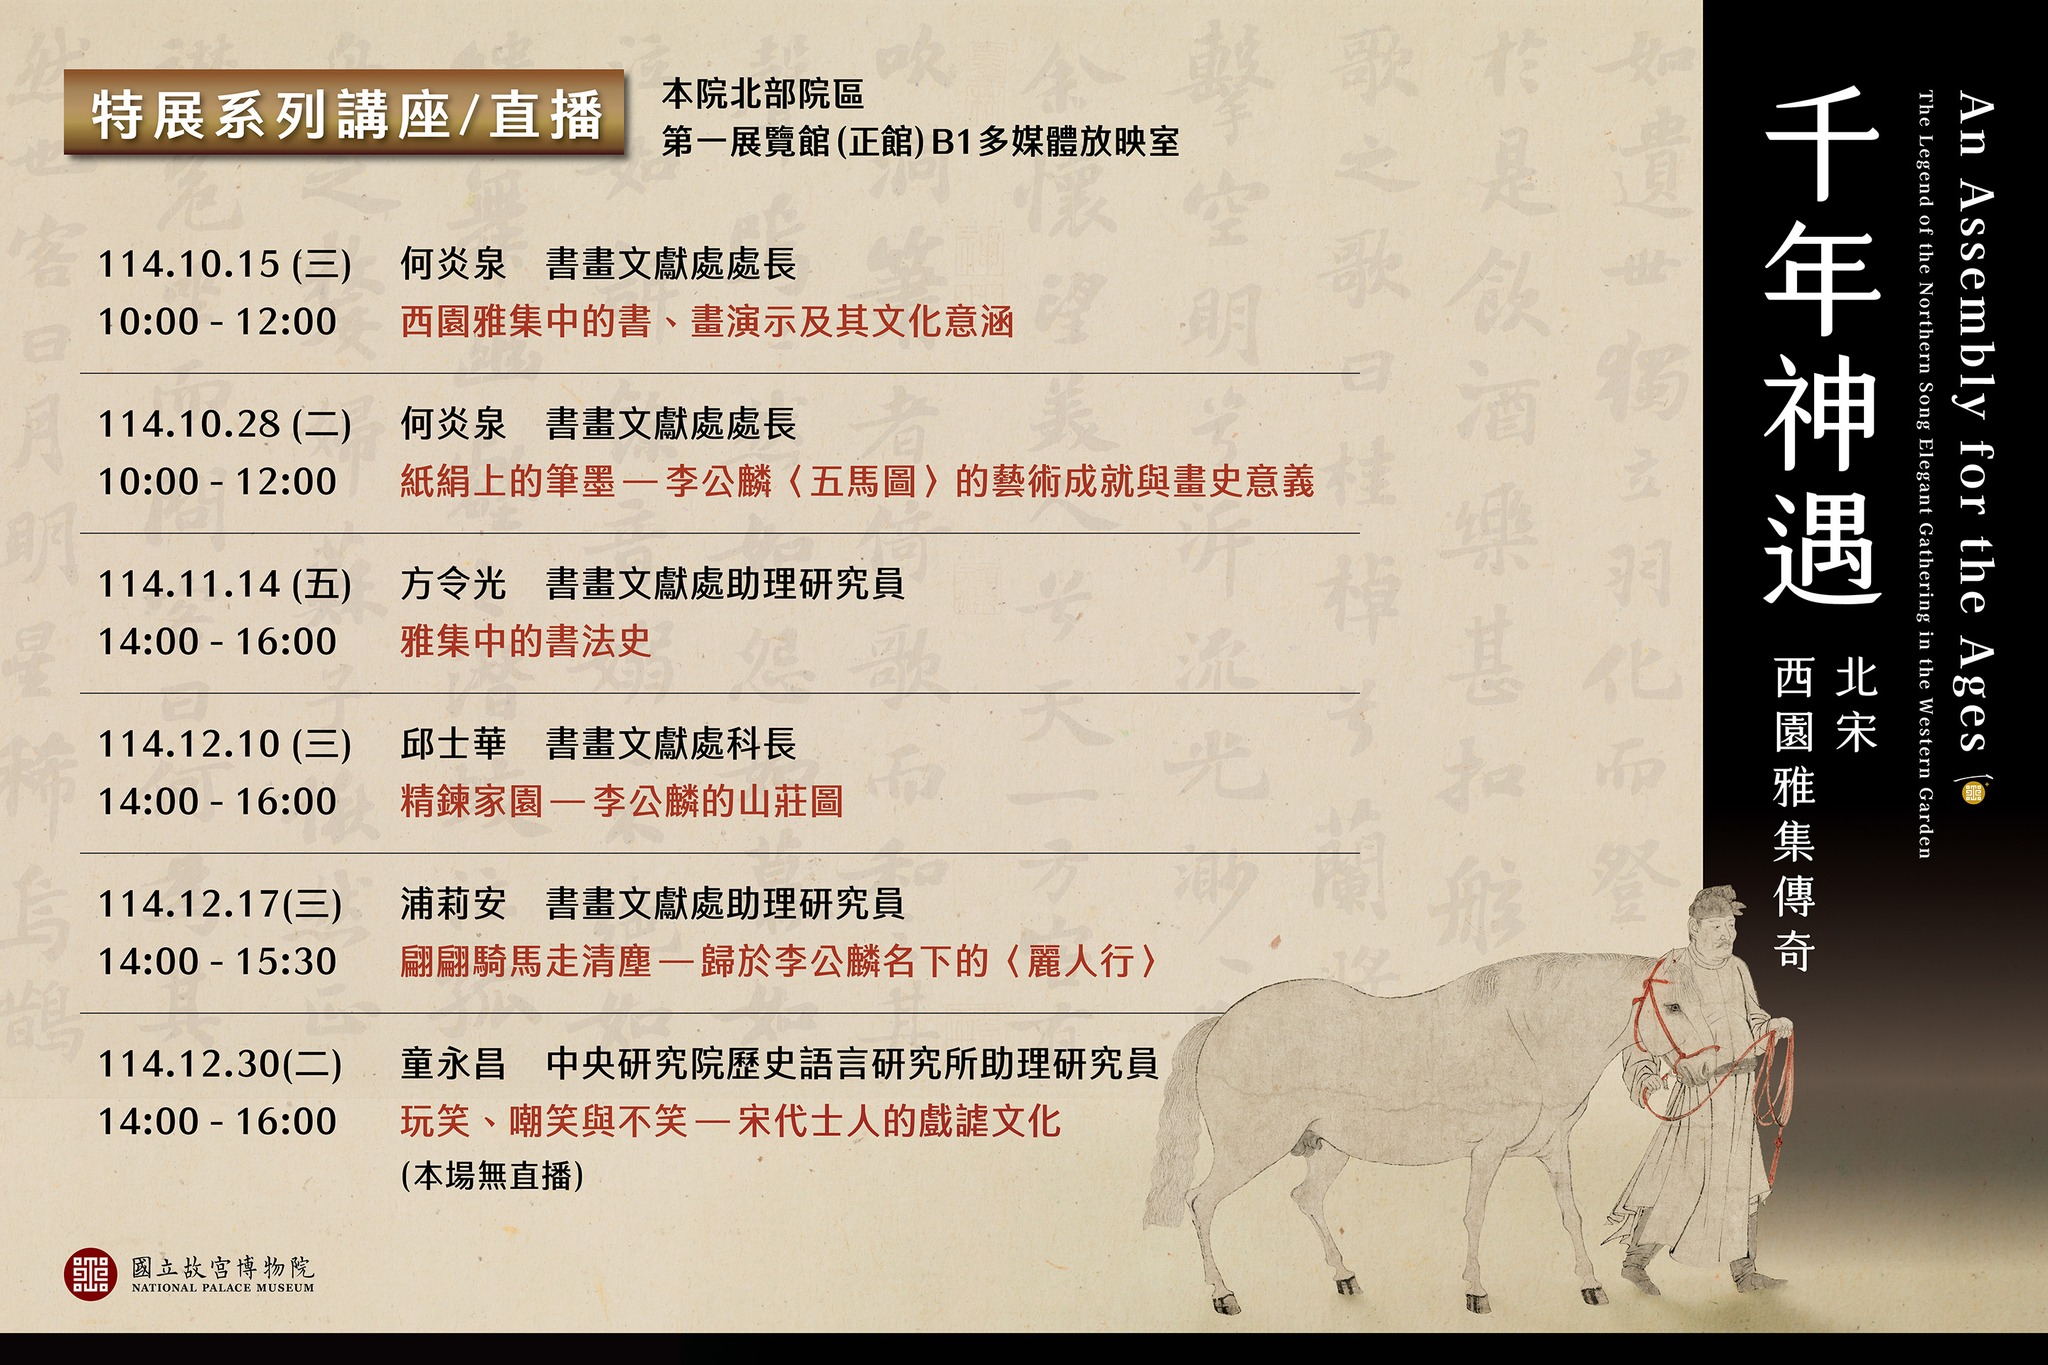 特展系列講座/直播
本院北部院區
第一展覽館(正館)B1多媒體放映室
114.10.15 (三) 何炎泉 書畫文獻處處長
10:00 - 12:00 西園雅集中的書、畫演示及其文化意涵
114.10.28 (二) 何炎泉 書畫文獻處處長
10:00 - 12:00 紙絹上的筆墨—李公麟〈五馬圖〉的藝術成就與畫史意義
114.11.14 (五) 方令光 書畫文獻處助理研究員
14:00 - 16:00 雅集中的書法史
114.12.10 (三) 邱士華 書畫文獻處科長
14:00 - 16:00 精鍊家園—李公麟的山莊圖
114.12.17(三) 浦莉安 書畫文獻處助理研究員
14:00 - 15:30 翩翩騎馬走清塵—歸於李公麟名下的〈麗人行〉
114.12.30(二) 童永昌 中央研究院歷史語言研究所助理研究員
14:00 - 16:00 玩笑、嘲笑與不笑—宋代士人的戲謔文化
(本場無直播)
國立故宮博物院
NATIONAL PALACE MUSEUM
An Assembly for the Ages
The Legend of the Northern Song Elegant Gathering in the Western Garden
千年神遇
北宋
西園雅集傳奇